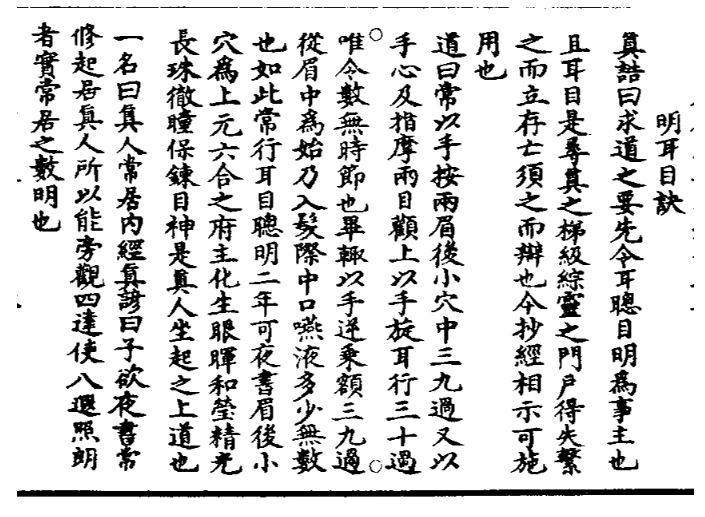 明耳目訣
真誥曰求道之要先令耳聰目明為事主也
且耳目是尋真之梯級綜靈之門戶得失繫
之而立存亡須之而辯也今抄經相示可施
用也
道曰常以手按兩眉後小穴中三九過又以
手心及指摩兩目顴上以手旋耳行三十過
唯令數無時節也畢輒以手逆乘額三九過
從眉中為始乃入髮際中口嚥液多少無數
也如此常行耳目聰明二年可夜書眉後小
穴為上元六合之府主化生眼暉和瑩精光
長珠徹瞳保鍊目神是真人坐起之上道也
一名曰真人常居内經真諺曰子欲夜書常
修起居真人所以能旁觀四達使八遐照朗
者實常居之數明也